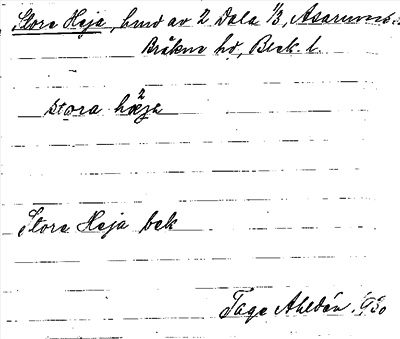 Stora Heja, hmd av 2 Dala 1/3, Asarums s.
Bräkne hd, Blek. l.
stora hæ²ja
Stora Heja bek
Tage Ahldén. 1930